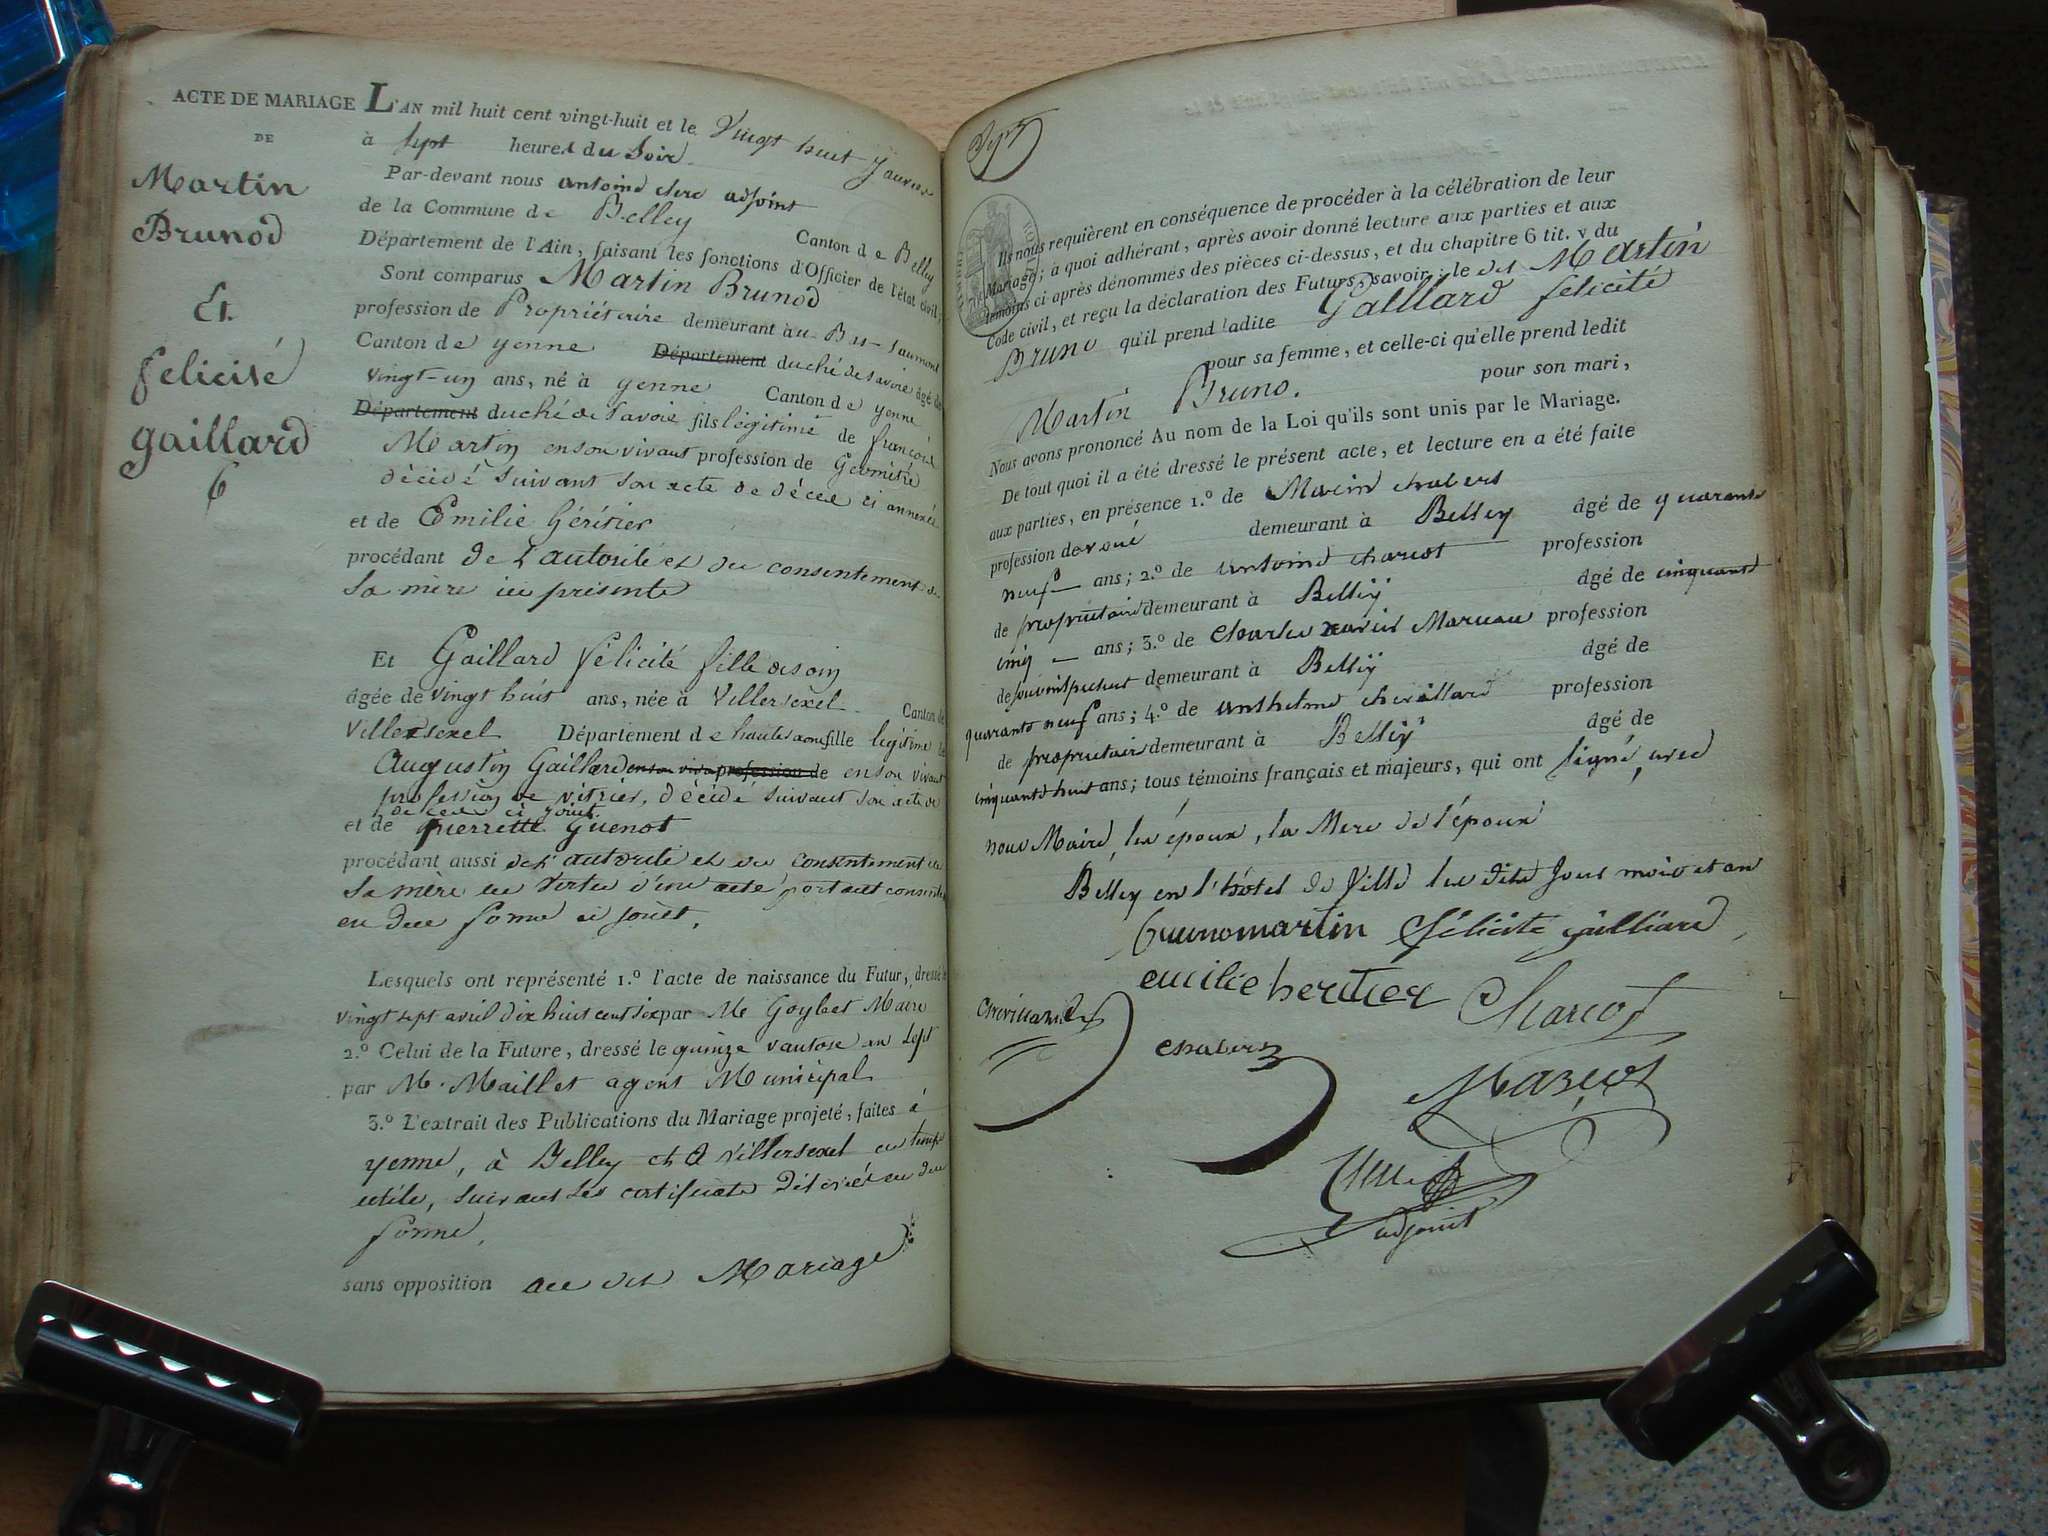 ACTE DE MARIAGE
DE
Martin
Brunod
Et
felicité
gaillard
6
L'AN mil huit cent vingt-huit et le Vingt huit Janvier
à Sept heures du Soir
Par-devant nous antoine adjoint
de la Commune de Belley Canton de Belley
Département de l'Ain, faisant les fonctions d'Officier de l'état civil,
Sont comparus Martin Brunod
profession de Propriétaire demeurant au
Canton de yenne Département duché de savoie âgé de
vingt-un ans, né à yenne Canton de yenne
Département duché de Savoie fils légitime de françois
Martin en son vivant profession de Géomètre
décédé suivant son acte de décès ci annexé
et de Emilie Géritier
procédant de l'autorité et du consentement de
Sa mère ici présente
Et Gaillard félicité fille de soin
âgée de vingt huit ans, née à Villersexel Canton de
Villersexel Département de haute saone fille légitime de
Augustin Gaillard en son vivant profession de en son vivant
profession de vitrier, décédé suivant son acte de
de cede ci joint
et de pierrette Guenot
procédant aussi de l'autorité et du consentement de
Sa mère en vertu d'un acte portant
en due forme ci joint,
Lesquels ont représenté 1.º l'acte de naissance du Futur, dressé le
vingt sept avril dix huit cent six par Me Goybet Maire
2.º Celui de la Future, dressé le quinze vantose an sept
par M. Maillet agent Municipal
3.º L'extrait des Publications du Mariage projeté, faites à
yenne, à Belley et à Villersexel en temps
utile, suivant les certificats délivrés en due
forme,
sans opposition au dit Mariage
Sept
Ils nous requièrent en conséquence de procéder à la célébration de leur
Mariage; à quoi adhérant, après avoir donné lecture aux parties et aux
témoins ci après dénommés des pièces ci-dessus, et du chapitre 6 tit. v du
Code civil, et reçu la déclaration des Futurs, savoir: le dit Martin
Bruno qu'il prend ladite Gaillard felicité
pour sa femme, et celle-ci qu'elle prend ledit
Martin Bruno. pour son mari,
Nous avons prononcé Au nom de la Loi qu'ils sont unis par le Mariage.
De tout quoi il a été dressé le présent acte, et lecture en a été faite
aux parties, en présence 1.º de Marin chabert
profession de avoué demeurant à Belley âgé de quarante
neuf ans; 2.º de antoine charcot profession
de propriétaire demeurant à Belley âgé de cinquante
cinq ans; 3.º de Charles xavier profession
de demeurant à Belley âgé de
quarante neuf ans; 4.º de anthelme chevillard profession
de propriétaire demeurant à Belley âgé de
cinquante huit ans; tous témoins français et majeurs, qui ont signé, avec
nous Maire, les époux, la Mere de l'époux
Belley en l'hôtel de Ville les dits Jour mois et an
bruno martin félicité gailliard
emilie heritier Charcot
chevillard
chabert
adjoint